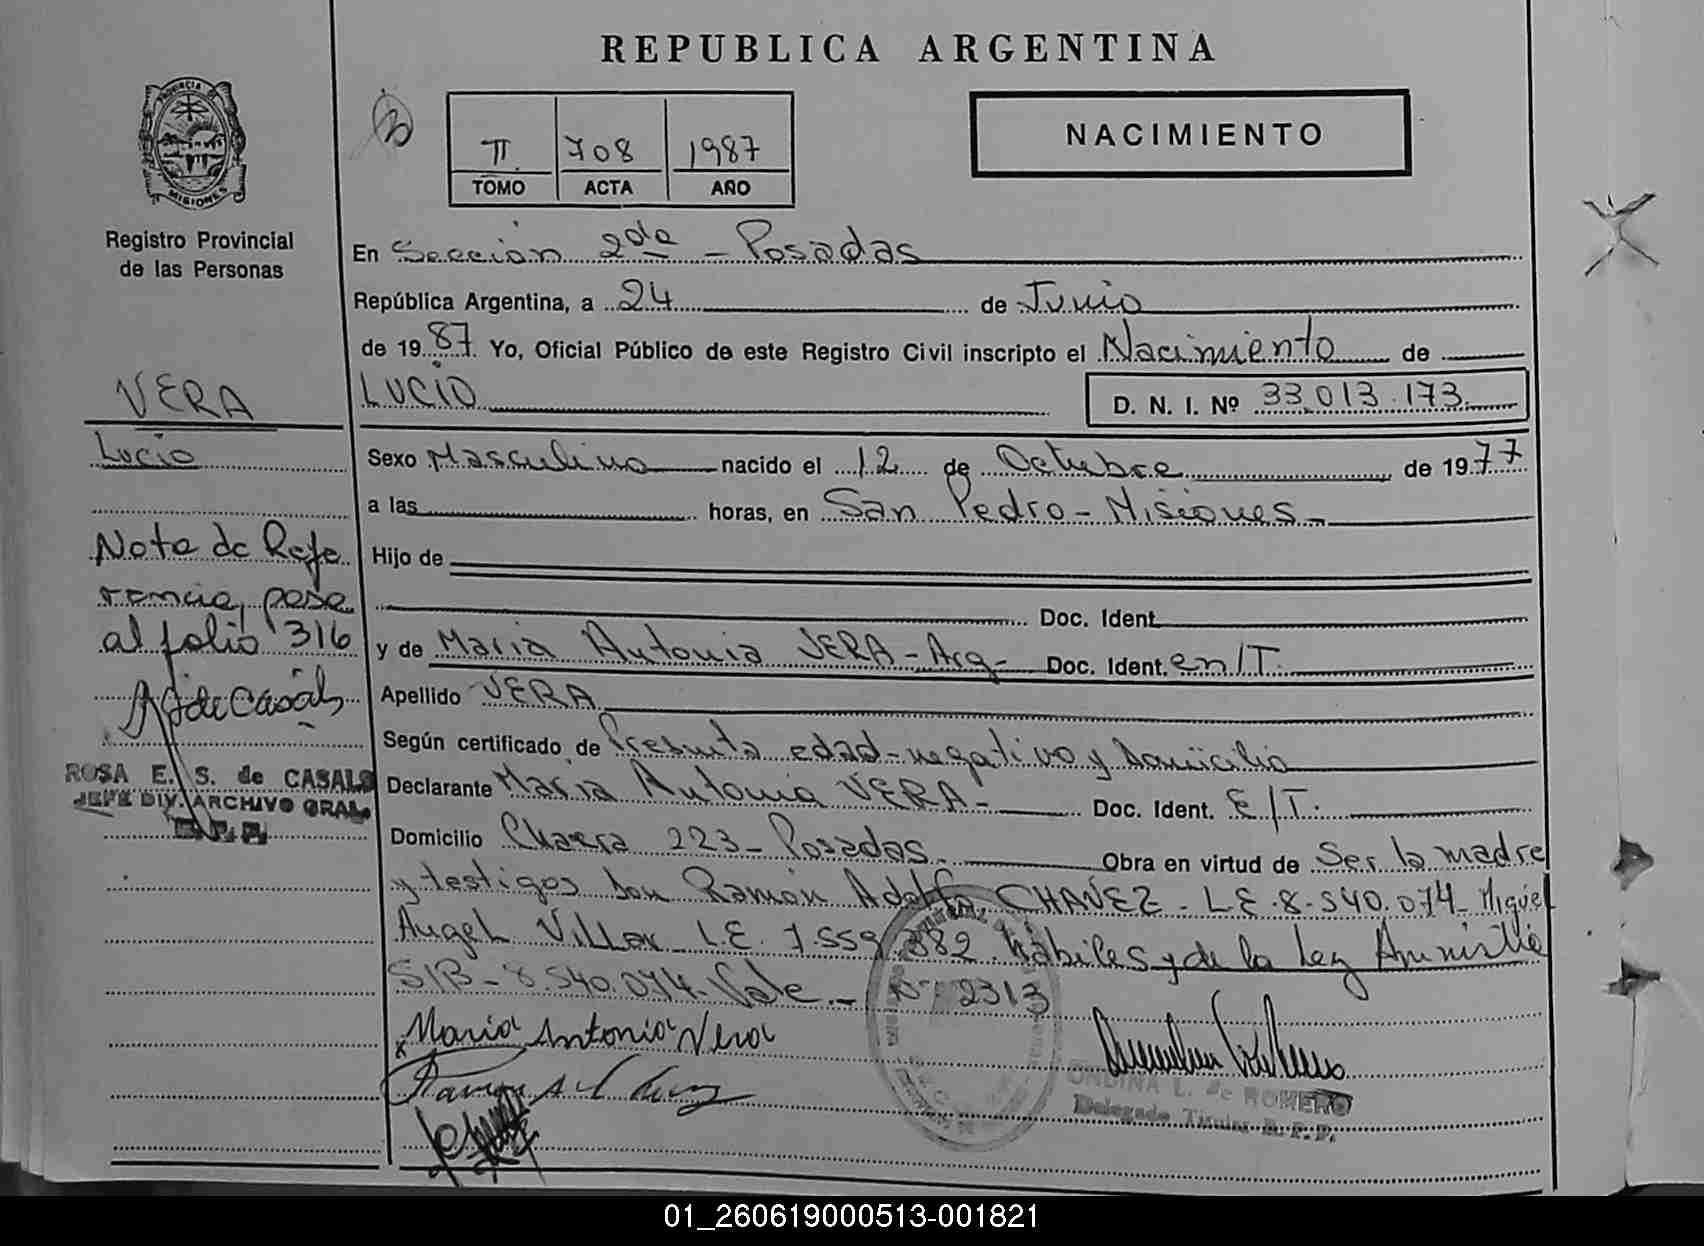 REPUBLICA ARGENTINA
PROVINCIA DE
MISIONES
Registro Provincial
de las Personas
II 708 1987
TOMO ACTA AÑO
NACIMIENTO
En Sección 2da - Posadas
República Argentina, a 24 de Junio
de 1987. Yo, Oficial Público de este Registro Civil inscripto el Nacimiento de
LUCIO D. N. I. Nº 33.013.173
VERA
Lucio
Sexo Masculino nacido el 12 de Octubre de 1977
a las horas, en San Pedro - Misiones -
Nota de Refe
rencia, pase
al folio 316
Hijo de
Doc. Ident.
y de Maria Antonia VERA - Arg - Doc. Ident. en/T.
Apellido VERA
Según certificado de Presunta edad - negativo y Domicilio
ROSA E. S. de CASALS
JEFE DIV. ARCHIVO GRAL.
Declarante Maria Antonia VERA - Doc. Ident. E/T.
Domicilio Chacra 223 - Posadas - Obra en virtud de Ser la madre
y testigos Don Ramón Adolfo CHAVEZ - L.E. 8.540.074 - Miguel
Angel Villar L.E. 7.559.382 hábiles y de la Ley Amnistía
S/B - 8.540.074 - Vale. - Nº 2313
Maria Antonia Vera
ONDINA L. de ROMERO
Delegada Titular R. P. P.
01_260619000513-001821